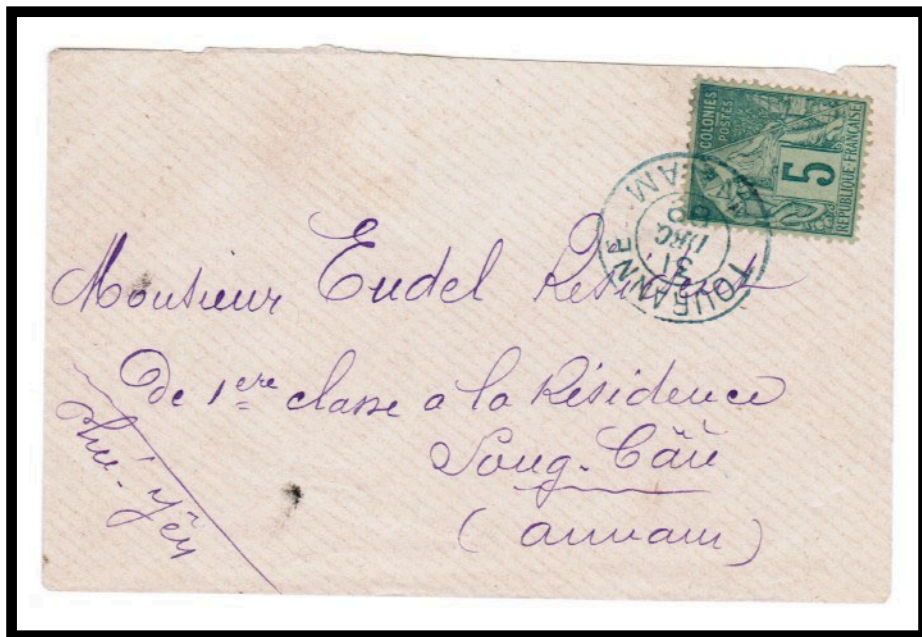 COLONIES
POSTES
5
REPUBLIQUE FRANÇAISE
TOURANNE
31
DEC
ANNAM
Monsieur Eudel Résident
De 1ere classe a la Résidence
Song-Câù
(annam)
Phú-Yên